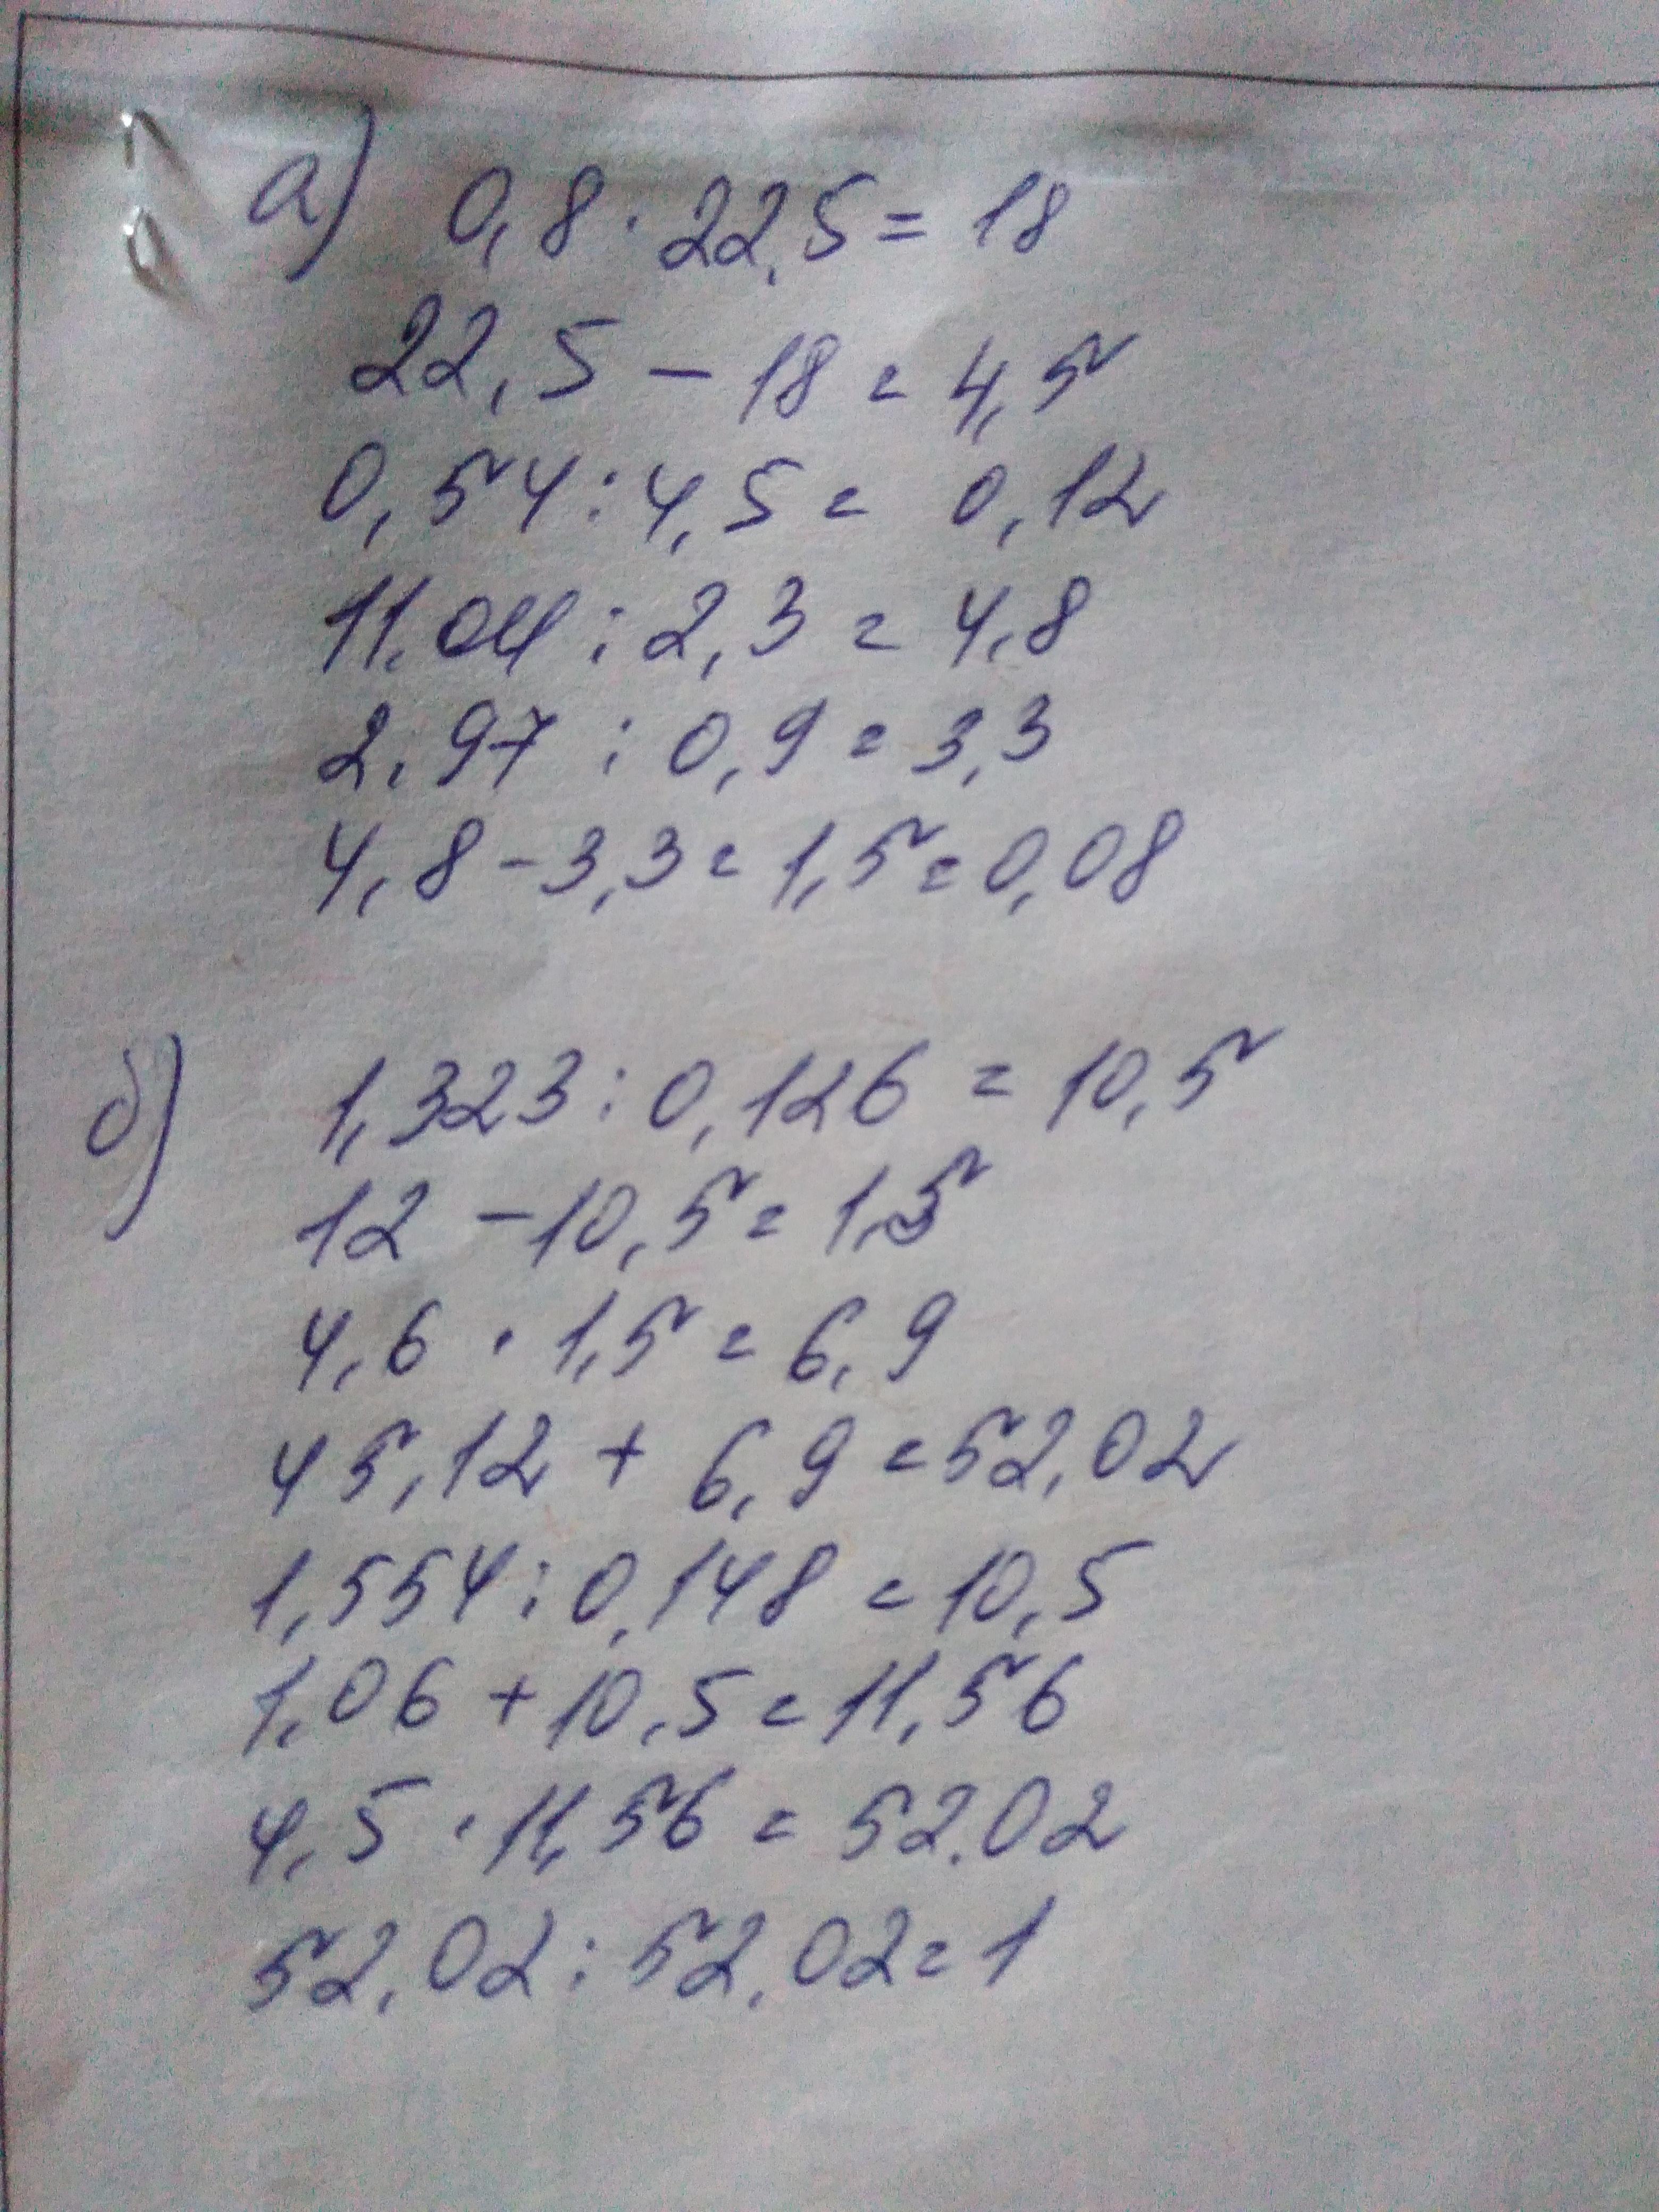 а) 0,8 · 22,5 = 18
22,5 - 18 = 4,5
0,54 : 4,5 = 0,12
11,04 : 2,3 = 4,8
2,97 : 0,9 = 3,3
4,8 - 3,3 = 1,5 = 0,08
б) 1,323 : 0,126 = 10,5
12 - 10,5 = 1,5
4,6 · 1,5 = 6,9
45,12 + 6,9 = 52,02
1,554 : 0,148 = 10,5
1,06 + 10,5 = 11,56
4,5 · 11,56 = 52,02
52,02 : 52,02 = 1